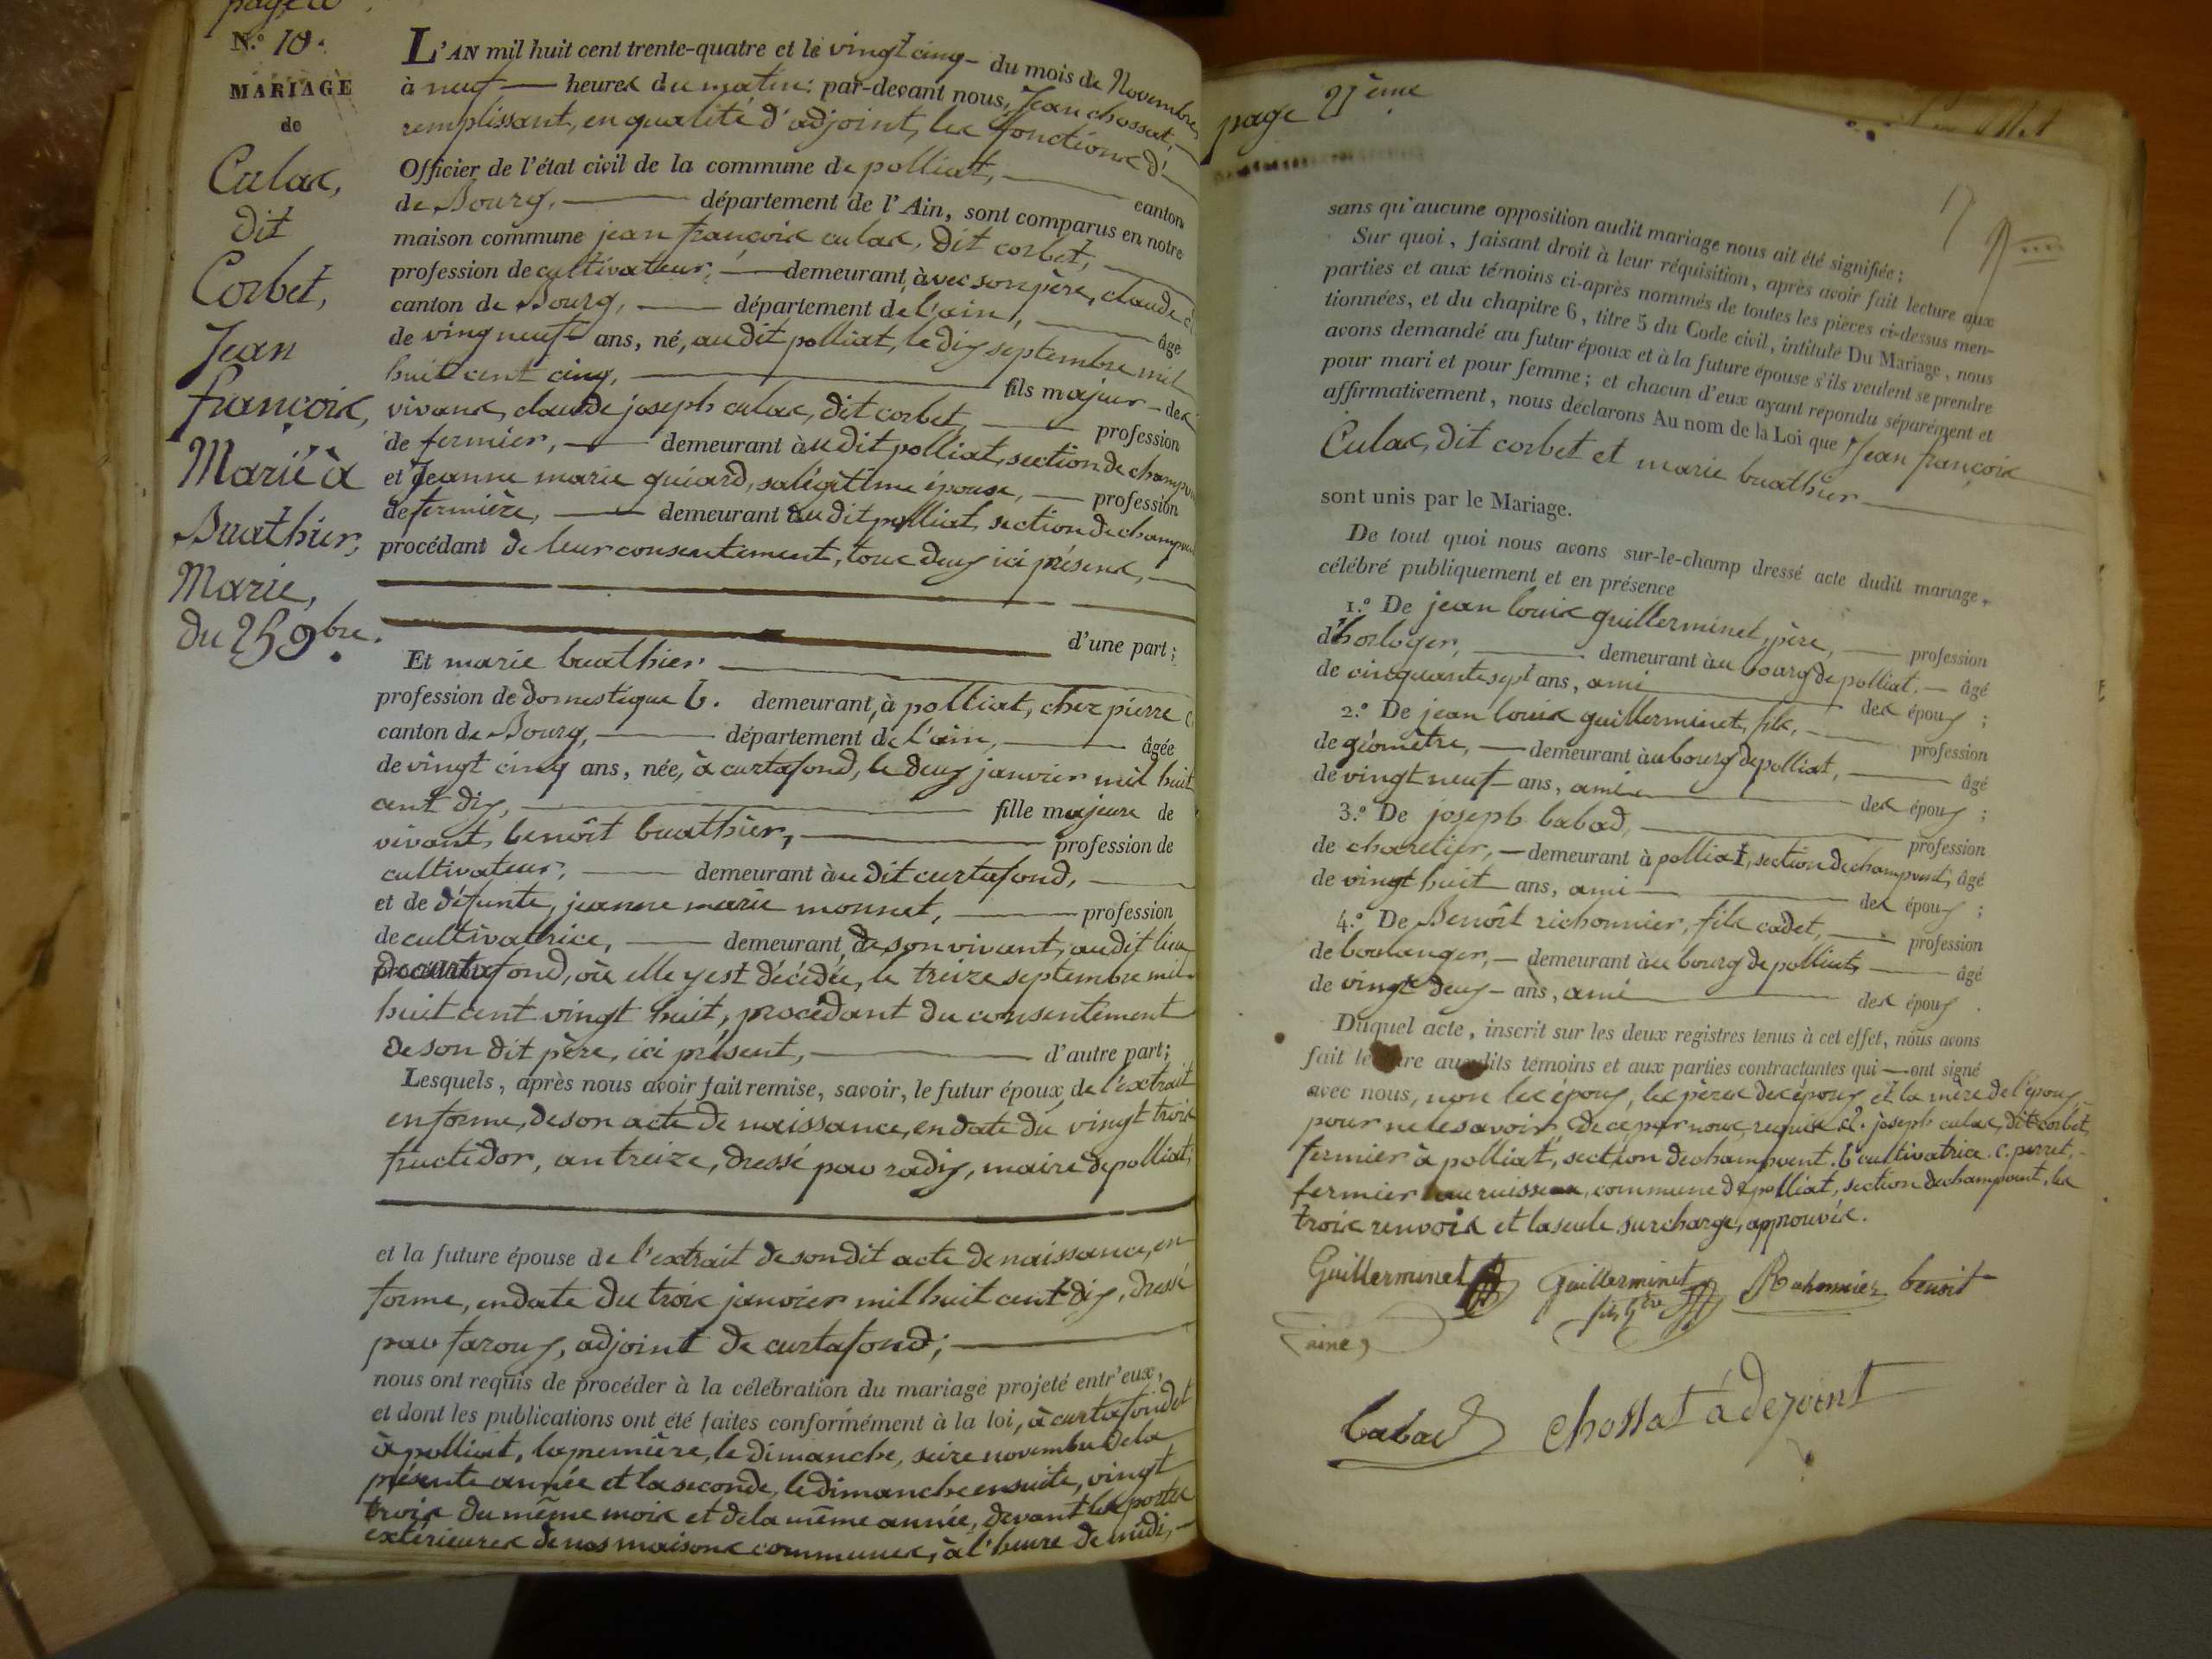 N.º 18.
MARIAGE
de
Culas,
dit
Corbet,
Jean
françois,
Marié à
Buathier,
Marie,
du 25 9bre.
L'AN mil huit cent trente-quatre et le vingt cinq - du mois de Novembre,
à neuf — heures du matin; par-devant nous, Jean chossat,
remplissant, en qualité d'adjoint, les fonctions d'
Officier de l'état civil de la commune de polliat, — canton
de Bourg, — département de l'Ain, sont comparus en notre
maison commune jean françois culas, dit corbet, —
profession de cultivateur, — demeurant, avec son père, claude
canton de Bourg, — département de l'ain, — âgé
de vingt neuf ans, né, audit polliat, le dix septembre mil
huit cent cinq, — fils majeur - des
vivans, claude joseph culas, dit corbet, — profession
de fermier, — demeurant àu dit polliat, section de champ
et Jeanne marie guiard, sa légitime épouse, — profession
de fermière, — demeurant àu dit polliat, section de champ
procédant de leur consentement, tous deux ici présens, —
d'une part;
Et marie buathier —
profession de domestique b. demeurant, à polliat, chez pierre
canton de Bourg, — département de l'ain, — âgée
de vingt cinq ans, née, à curtafond, le deux janvier mil huit
cent dix, — fille majeure de
vivant, benoît buathier, — profession de
cultivateur, — demeurant àu dit curtafond, —
et de défunte, jeanne marie monnet, — profession
de cultivatrice, — demeurant, de son vivant, audit lieu
de curtafond, où elle y est décédée, le treize septembre mil
huit cent vingt huit, procédant du consentement
de son dit père, ici présent, — d'autre part;
Lesquels, après nous avoir fait remise, savoir, le futur époux, de l'extrait
en forme, de son acte de naissance, en date du vingt trois
fructidor, an treize, dressé par radix, maire de polliat;
et la future épouse de l'extrait de son dit acte de naissance, en
forme, en date du trois janvier mil huit cent dix, dressé
par faroux, adjoint de curtafond; —
nous ont requis de procéder à la célébration du mariage projeté entr'eux,
et dont les publications ont été faites conformément à la loi, à curtafond et
à polliat, la première, le dimanche, seize novembre de la
présente année et la seconde, le dimanche ensuite, vingt
trois du même mois et de la même année, devant les portes
extérieures de nos maisons communes, à l'heure de midi, —
page 21ème
sans qu'aucune opposition audit mariage nous ait été signifiée;
Sur quoi, faisant droit à leur réquisition, après avoir fait lecture aux
parties et aux témoins ci-après nommés de toutes les pièces ci-dessus men-
tionnées, et du chapitre 6, titre 5 du Code civil, intitulé Du Mariage, nous
avons demandé au futur époux et à la future épouse s'ils veulent se prendre
pour mari et pour femme; et chacun d'eux ayant répondu séparément et
affirmativement, nous déclarons Au nom de la Loi que Jean françois
Culas, dit corbet et marie buathier —
sont unis par le Mariage.
De tout quoi nous avons sur-le-champ dressé acte dudit mariage,
célébré publiquement et en présence
1.º De jean louis guillerminet, père, — profession
d'horloger, — demeurant àu bourg de polliat, — âgé
de cinquante sept ans, ami — des époux;
2.º De jean louis guillerminet, fils, — profession
de géomètre, — demeurant àu bourg de polliat, — âgé
de vingt neuf ans, ami — des époux;
3.º De joseph babad, — profession
de charetier, — demeurant à polliat, section de champvent, âgé
de vingt huit ans, ami — des époux;
4.º De Benoît richonnier, fils cadet, — profession
de boulanger, — demeurant àu bourg de polliat, — âgé
de vingt deux - ans, ami — des époux.
Duquel acte, inscrit sur les deux registres tenus à cet effet, nous avons
fait lecture auxdits témoins et aux parties contractantes qui — ont signé
avec nous, non les époux, les pères des époux et la mère de l'époux,
pour ne le savoir, de ce par nous, requis. a. joseph culas, dit corbet,
fermier à polliat, section de champvent. b. cultivatrice. c. perret,
fermier au ruisseau, commune de polliat, section de champvent, les
trois renvois et la seule surcharge, approuvés.
Guillerminet
Guillerminet
fils gtre
Richonnier benoit
ainé
babad
chossat àdejoint